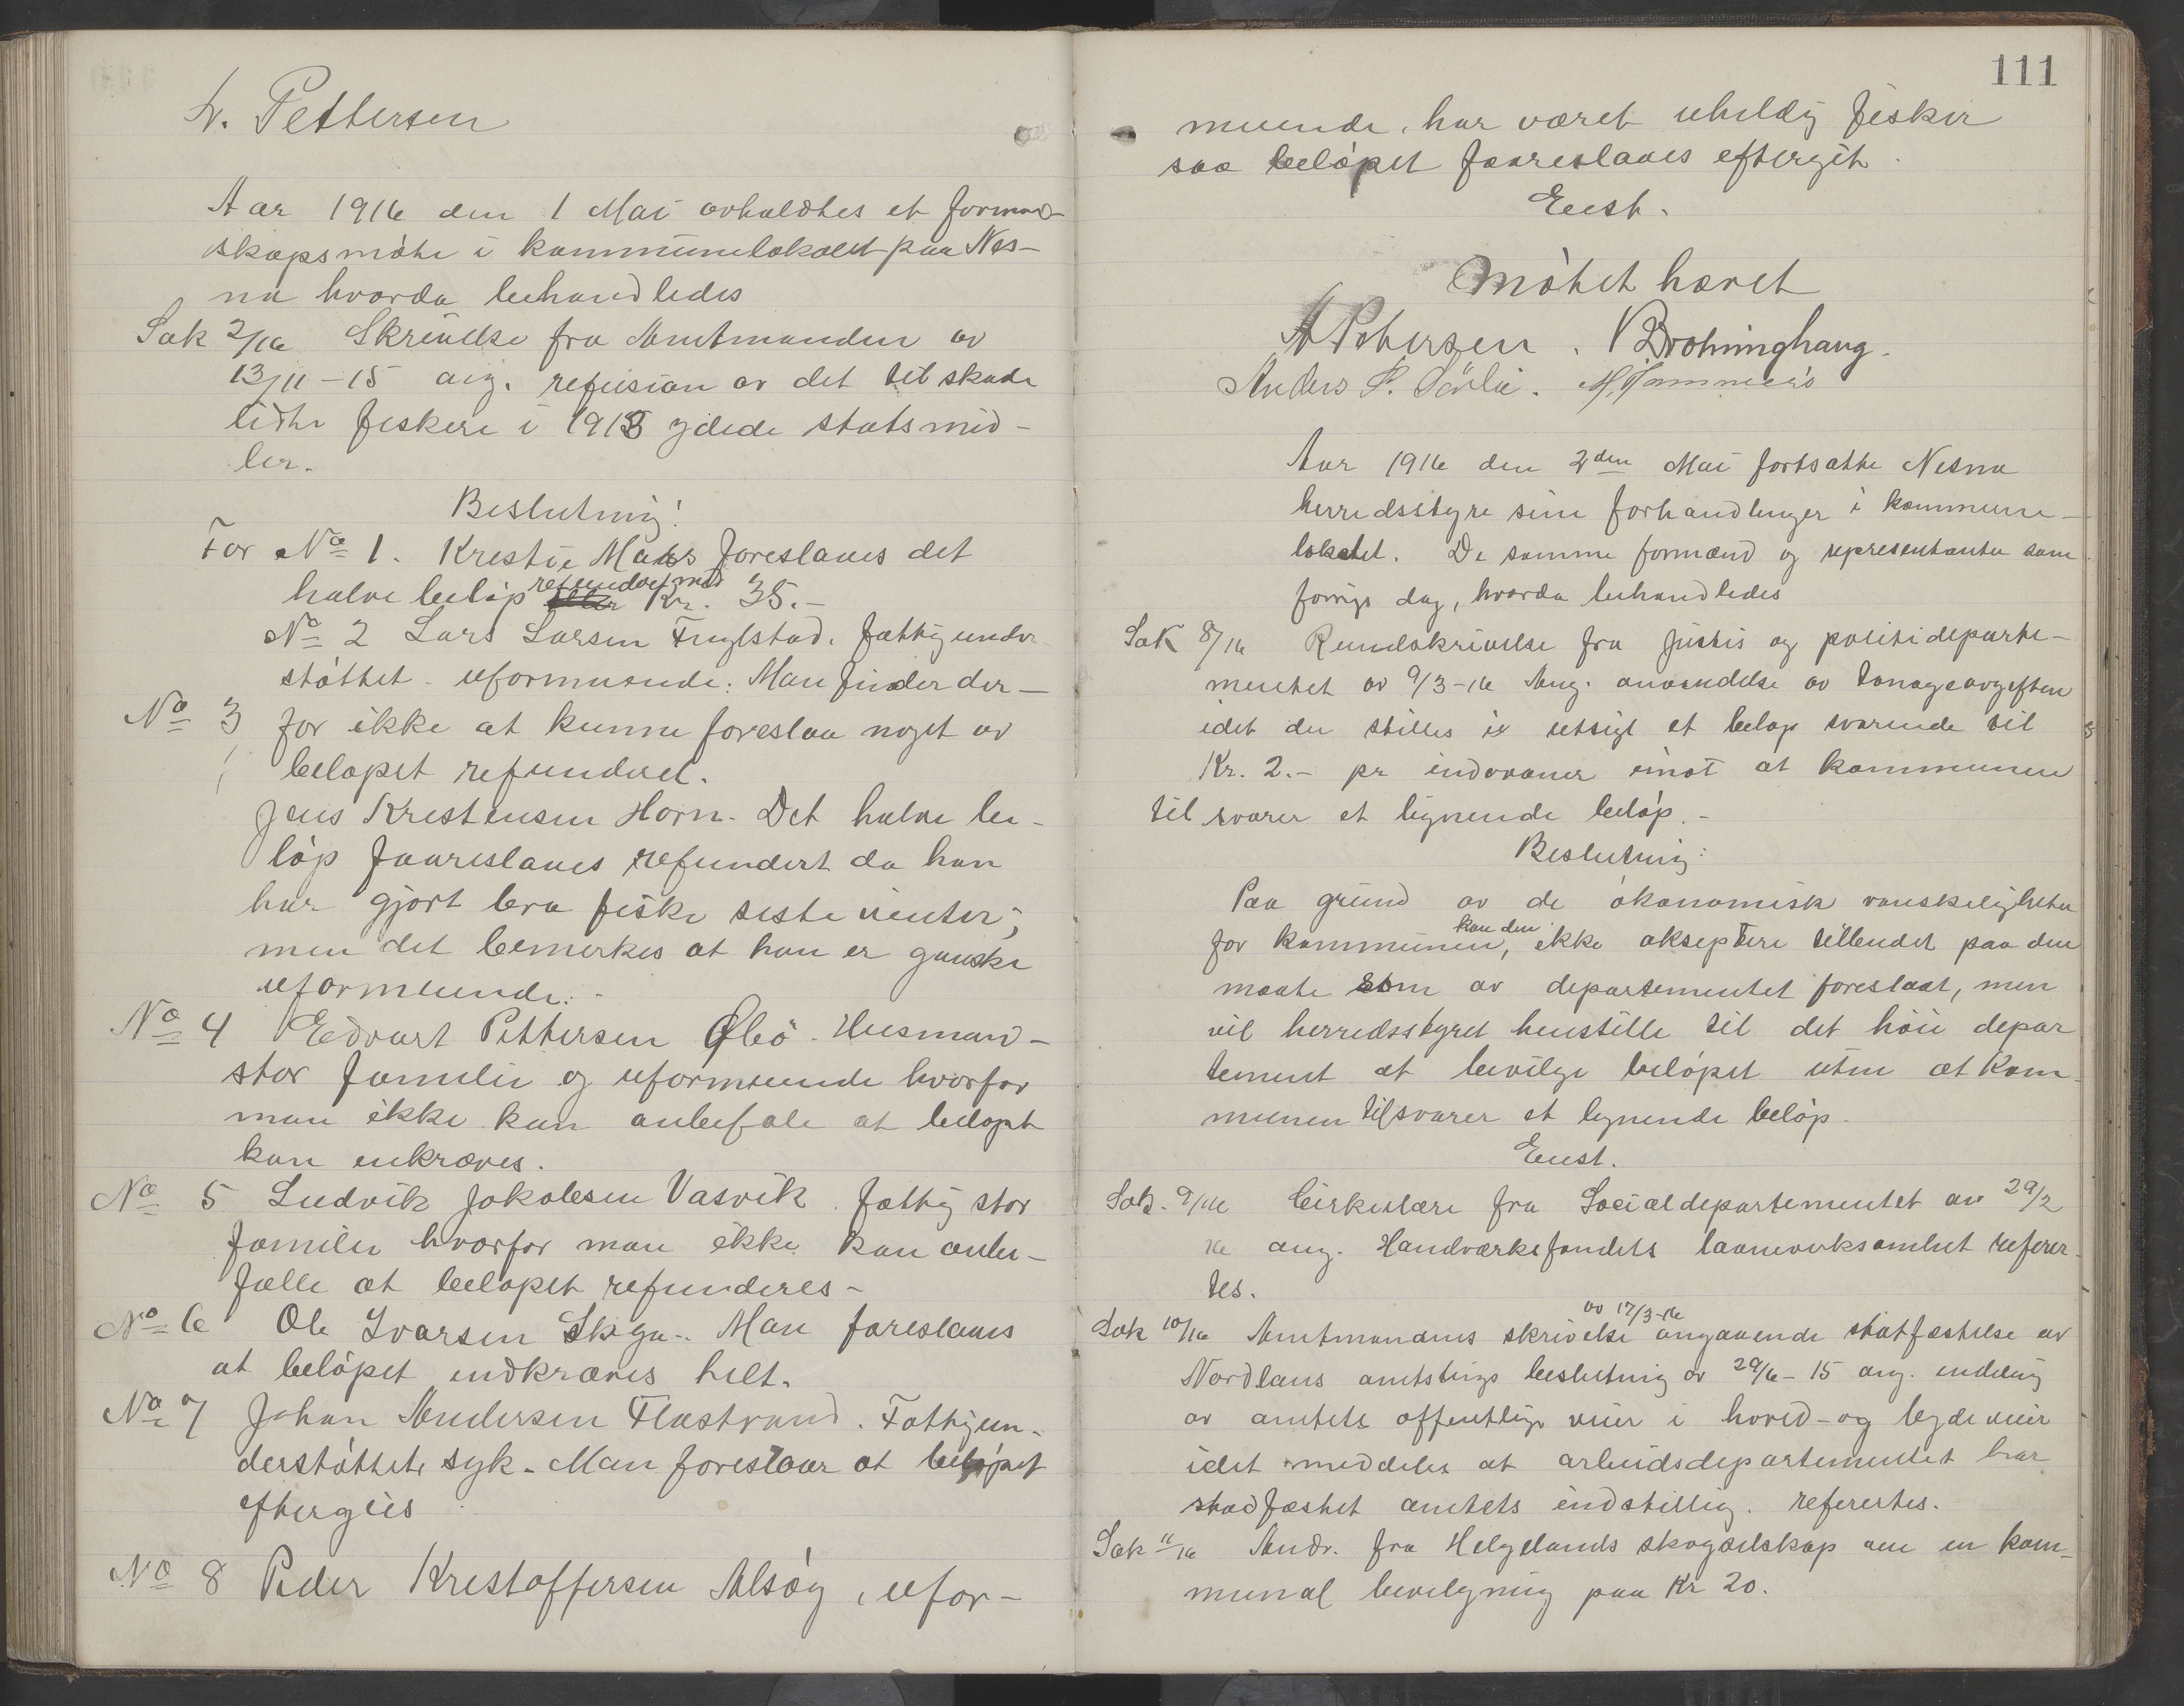 A. Pettersen
Aar 1916 den 1 Mai avholdtes et formand-
skapsmöte i kommunelokalet paa Nes-
na hvorda behandledes
Sak 2/16 Skrivelse fra Amtmanden av
13/11-15 ang. refusion av det til skade
lidte fiskere i 1913 ydede statsmid-
ler.
Beslutning:
For No 1. Kristie Maks foreslaaes det
halve belöp refunderet med Kr. 35.-
No 2 Lars Larsen Fuglstad. fattigunder
støttet - uformuende: Man finder der-
No 3 for ikke at kunne foreslaa noget av
belöpet refunderet.
Jens Kristensen Horn. Det halve be-
löp foareslaaes refundert da han
har gjort bra fiske siste vinter;
men det bemerkes at han er ganske
uformuende. -
No 4 Edvart Pettersen Øbö. Husmand-
stor familie og uformuende hvorfor
man ikke kan anbefale at belöpt
kan enkræves.
No 5 Ludvik Jakobsen Vasvik. fattig stor
familie hvorfor man ikke kan anbe-
falle at belöpet refunderes -
No 6 Ole Ivarsen Skga-. Man foreslaaes
at belöpet indkræves helt.
No 7 Johan Andersen Flastrand. Fattigun-
derstöttet syk. Man foreslaar at belöpet
eftergies
No 8 Peder Kristoffersen Alsöy, ufor-
111
muende, har været uheldig fisker
saa belöpet foareslaaes eftergit.
Enst.
Mötet hævet
A Petersen. Brohninghaug.
Anders P. Sörli. M, Hammerö
Aar 1916 den 2den Mai fortsatte Nesna
herredsstyre sine forhandlinger i kommune-
lokalet. De samme formænd og representanter som
forrige dag, hvorda behandledes
Sak 8/16 Rundskrivelse fra Justis og politideparte-
mentet av 9/3-16 Ang. anvendelse av tonageavgiften
idet der stilles i utsigt et belöp svarende til
Kr. 2.- pr indvaaner imot at kommunen
til svarer et lignende belöp. -
Beslutning:
Paa grund av de ökonomisk vanskeligheter
for kommunen, kan den ikke akseptere tilbudet paa den
maate som av departementet foreslaat, men
vil herredsstyret henstille til det höie depar
tement at bevilge belöpet uten at Kom-
munen tilsvarer et lignende belöp.
Enst.
Sak. 9/16 Cirkulære fra Socialdepartementet av 29/2
16 ang. Handværksfondets laanevirksomhet referer-
tes.
Sak 10/16 Amtmandens skrivelse av 17/3-16 angaaende statfæstelse av
Nordlans amtstings beslutning av 29/6-15 ang. inddeling
av amtets offentlige veier i hoved- og bygdeveier
idet meddeles at arbeidsdepartementet har
stadfæstet amtets indstillig. referertes.
Sak 11/16 Andr. fra Helgelands skogselskap om en kom-
munal bevilgning paa Kr 20.